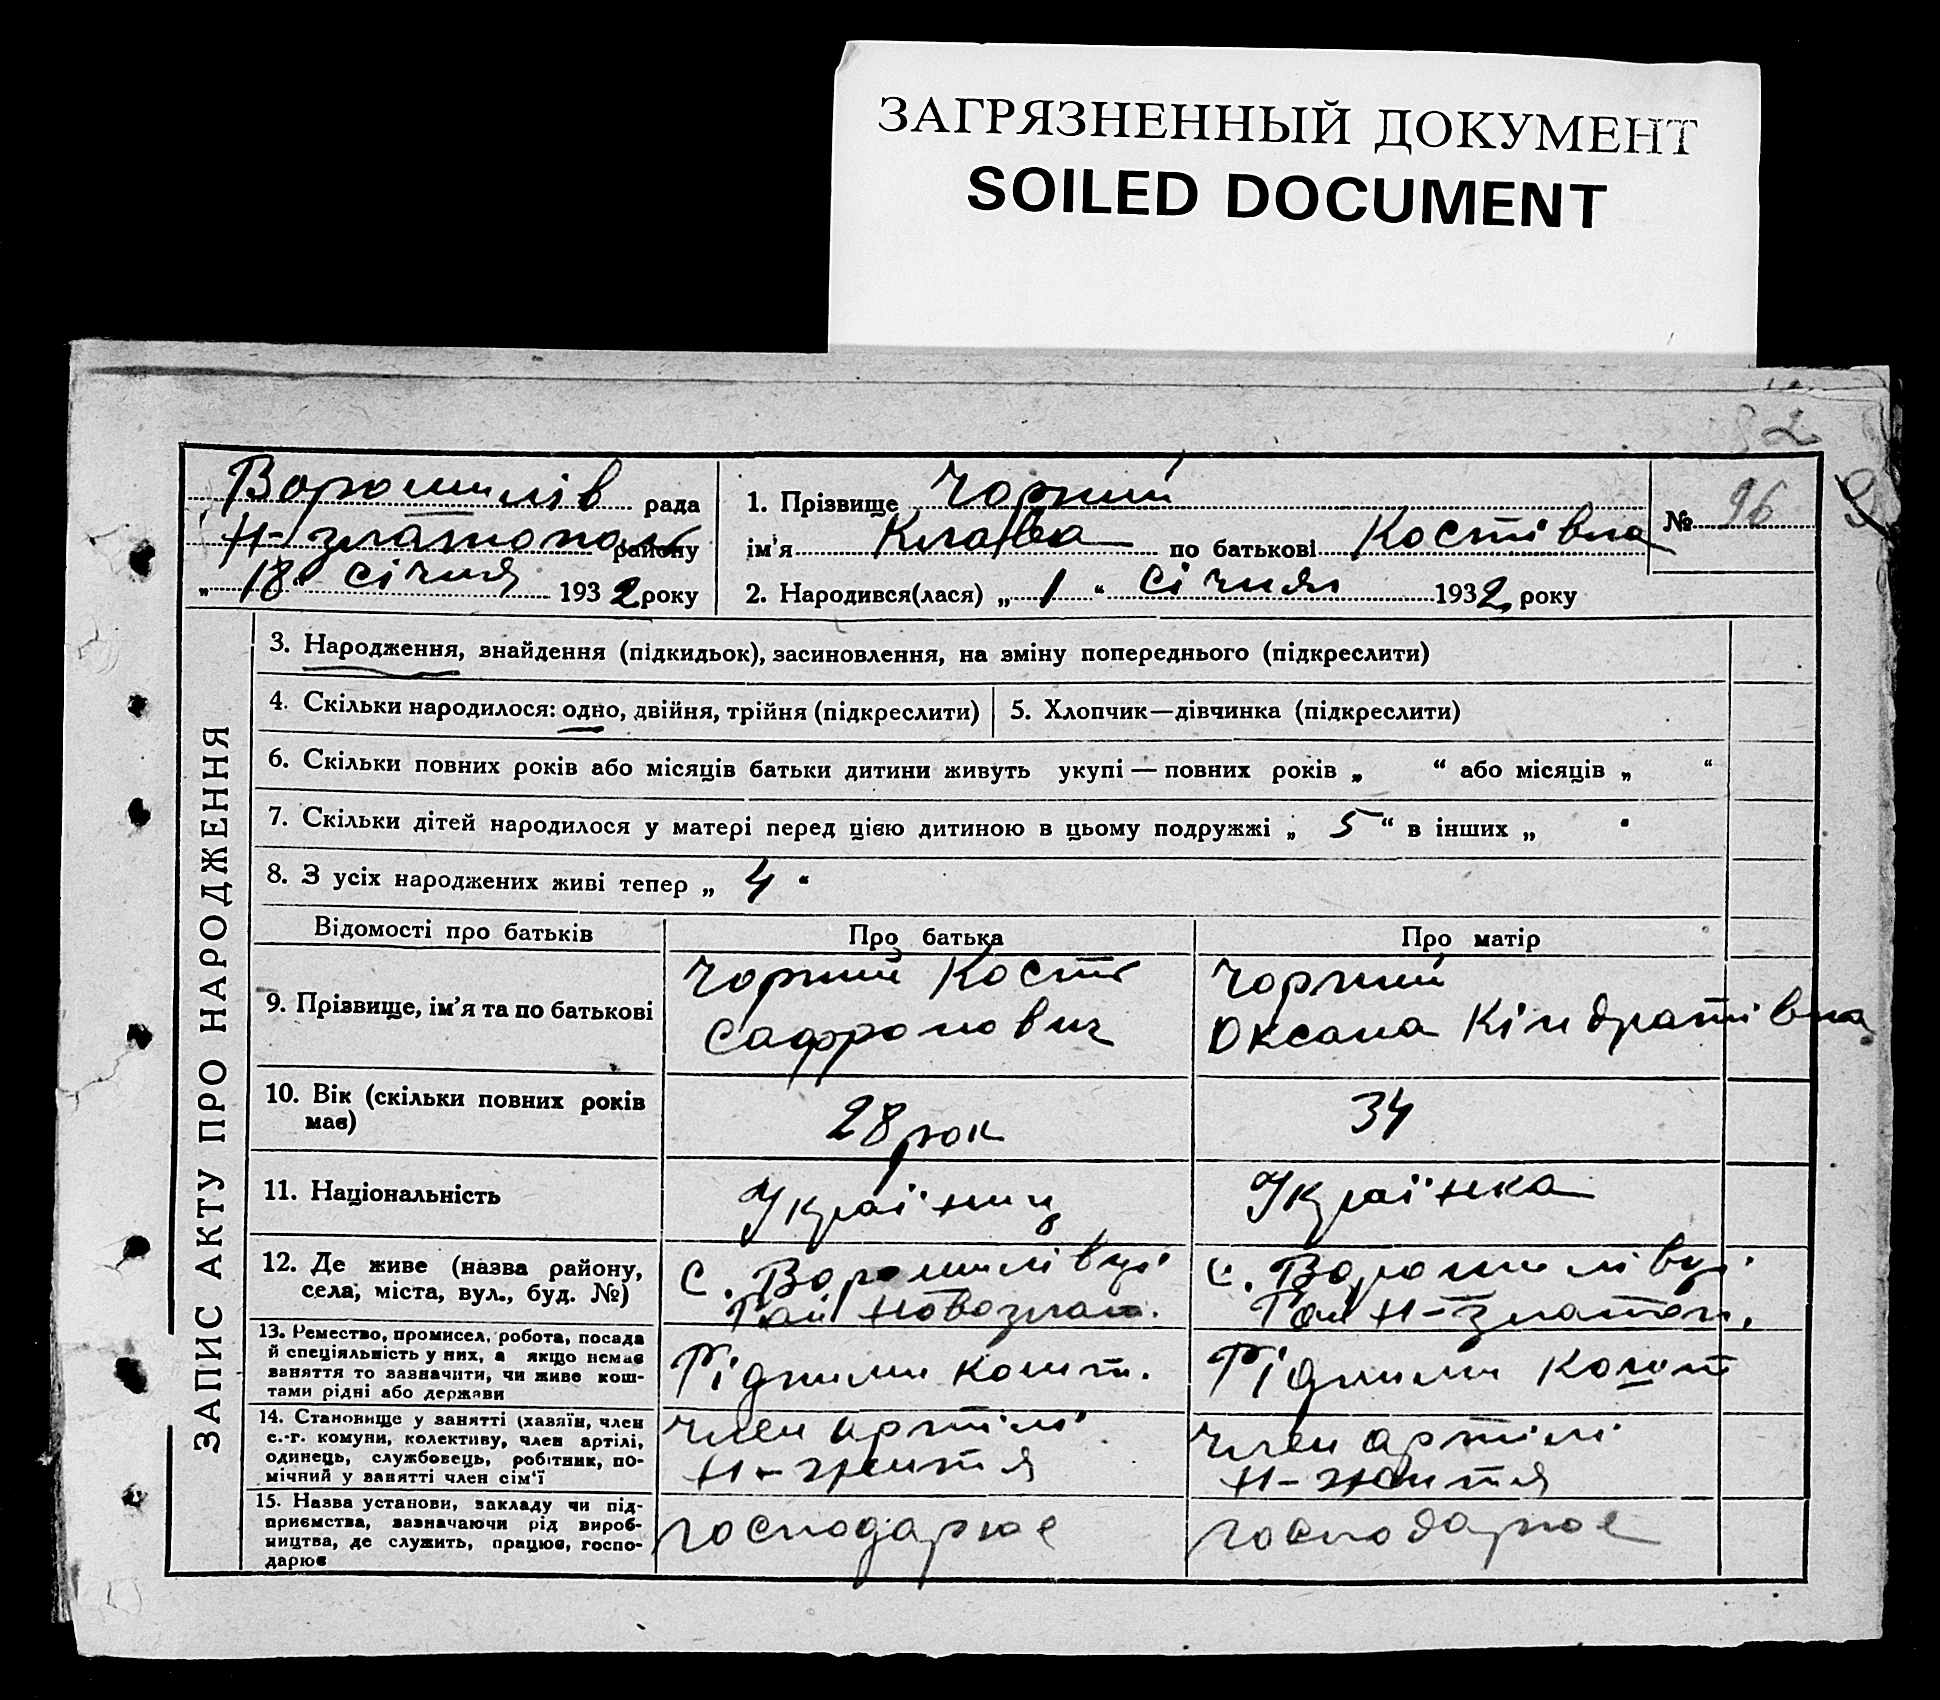 ЗАГРЯЗНЕННЫЙ ДОКУМЕНТ
SOILED DOCUMENT
82
Ворошилів рада
Н-златопол району
„ 18 “ січня 1932 року
1. Прізвище Чорний
ім'я Клавва по батькові Костівна
2. Народився(лася) „ 1 “ січня 1932 року
№ 96
ЗАПИС АКТУ ПРО НАРОДЖЕННЯ
3. Народження, знайдення (підкидьок), засиновлення, на зміну попереднього (підкреслити)
4. Скільки народилося: одно, двійня, трійня (підкреслити)
5. Хлопчик—дівчинка (підкреслити)
6. Скільки повних років або місяців батьки дитини живуть укупі — повних років „ “ або місяців „ “
7. Скільки дітей народилося у матері перед цією дитиною в цьому подружжі „ 5 “ в інших „ “
8. З усіх народжених живі тепер „ 4 “
Відомості про батьків
Про батька
Про матір
9. Прізвище, ім'я та по батькові
Чорний Кость
Сафронович
Чорний
Оксана Кіндратівна
10. Вік (скільки повних років
має)
28 рок
34
11. Національність
Україниц
Українка
12. Де живе (назва району,
села, міста, вул., буд. №)
с. Ворошилівці
Рай Новозлат.
с. Ворошилівці
Рай Н-Златоп.
13. Ремество, промисел, робота, посада
й спеціяльність у них, а якщо немає
заняття то зазначити, чи живе кош-
тами рідні або держави
Рідними кошт.
Рідними кошт
14. Становище у занятті (хазяїн, член
с.-г. комуни, колективу, член артілі,
одинець, службовець, робітник, по-
мічний у занятті член сім'ї
член артілі
Н-життя
член артілі
Н-життя
15. Назва установи, закладу чи під-
приємства, зазначаючи рід вироб-
ництва, де служить, працює, госпо-
дарює
господарює
господарює